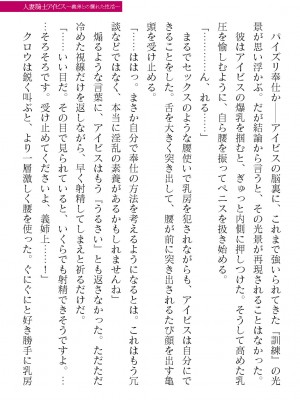 人妻騎士アイビス
　パイズリ奉仕か――アイビスの脳裏に、これまで強いられてきた『訓練』の光
景が思い浮かぶ。だが結論から言うと、その光景が再現されることはなかった。
　彼はアイビスの爆乳を掴むと、ぎゅっと内側に押しつけた。そうして高めた乳
圧を愉しむように、自ら腰を振ってペニスを扱き始める。
「……ん、れる……」
　まるでセックスのような腰使いで乳房を犯されながらも、アイビスは自分にで
きることをした。舌を大きく突き出して、腰が前に突き出されるたび顔を出す亀
頭を受け止める。
「……ははっ。まさか自分で奉仕の方法を考えますとは。これはもう冗
談などではなく、本当に淫乱の素養があるかもしれませんね」
　煽るような言葉に、アイビスはもう「うるさい」とも返さなかった。ただただ
冷めた視線だけを返しながら、早く射精してしまえと祈るだけだ。
「……いい目だ。その目で見られていると、いくらでも射精できそうですよ。
そろそろです。受け止めてくださいよ、義姉上……！」
　クロウは鋭く叫ぶと、より一層激しく腰を使った。ぐにぐにと好き勝手に乳房